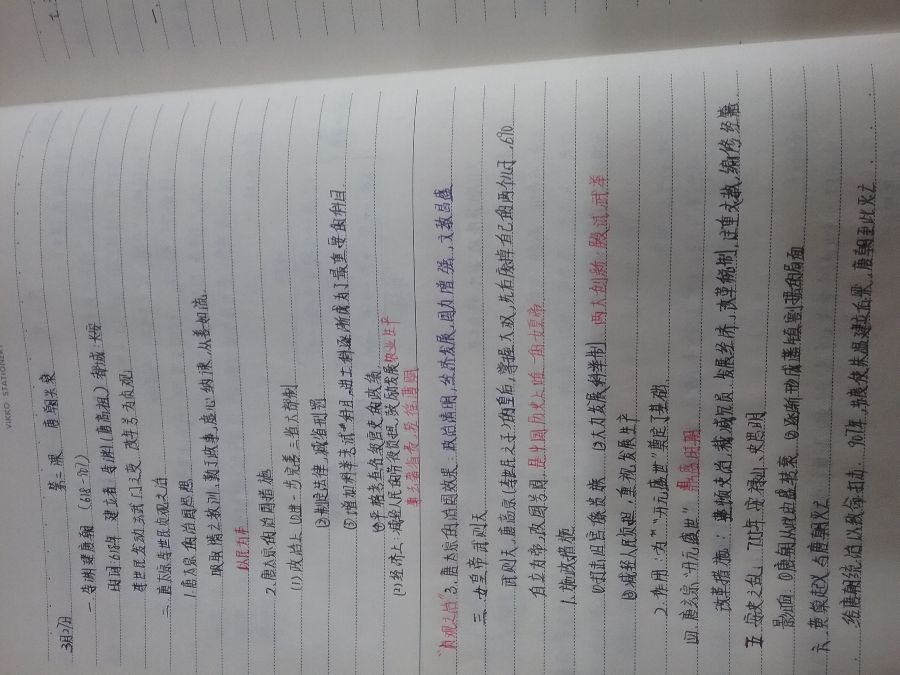 VIKKO STATIONERY
3月27日 第二课 唐朝兴衰
一.李渊建唐朝 (618-907)
时间:618年 建立者:李渊(唐高祖) 都城:长安
李世民发动玄武门之变,改年号为贞观
二.唐太宗李世民贞观之治
1.唐太宗的治国思想
吸取隋亡教训,勤于政事,虚心纳谏,从善如流.
以民为本
2.唐太宗的治国措施
(1)政治上:①进一步完善三省六部制
②制定法律,减省刑罚
③增加科举考试科目,进士科逐渐成为了最重要的科目
④严格考查各级官吏的政绩
(2)经济上:减轻人民的劳役负担,鼓励发展农业生产
"贞观之治" 3.唐太宗的治国效果:政治清明,经济发展,国力增强,文教昌盛
三.女皇帝武则天
武则天,唐高宗(李世民之子)的皇后,掌握大权,先后废掉自己的两个儿子.690
自立为帝,改国号周,是中国历史上唯一的女皇帝
1.施政措施
①打击旧官僚贵族 ②大力发展科举制 两大创新:殿试,武举
③减轻人民负担,重视发展生产
2.作用:为"开元盛世"奠定了基础
四.唐玄宗"开元盛世" 鼎盛时期
改革措施:整顿吏治,裁减冗员,发展经济,改革税制,注重文教,编修经籍
五.安史之乱:755年,安禄山,史思明
影响:①唐朝从此由盛转衰 ②逐渐形成藩镇割据的局面
六.黄巢起义与唐朝灭亡
给唐朝统治以致命打击.907年,